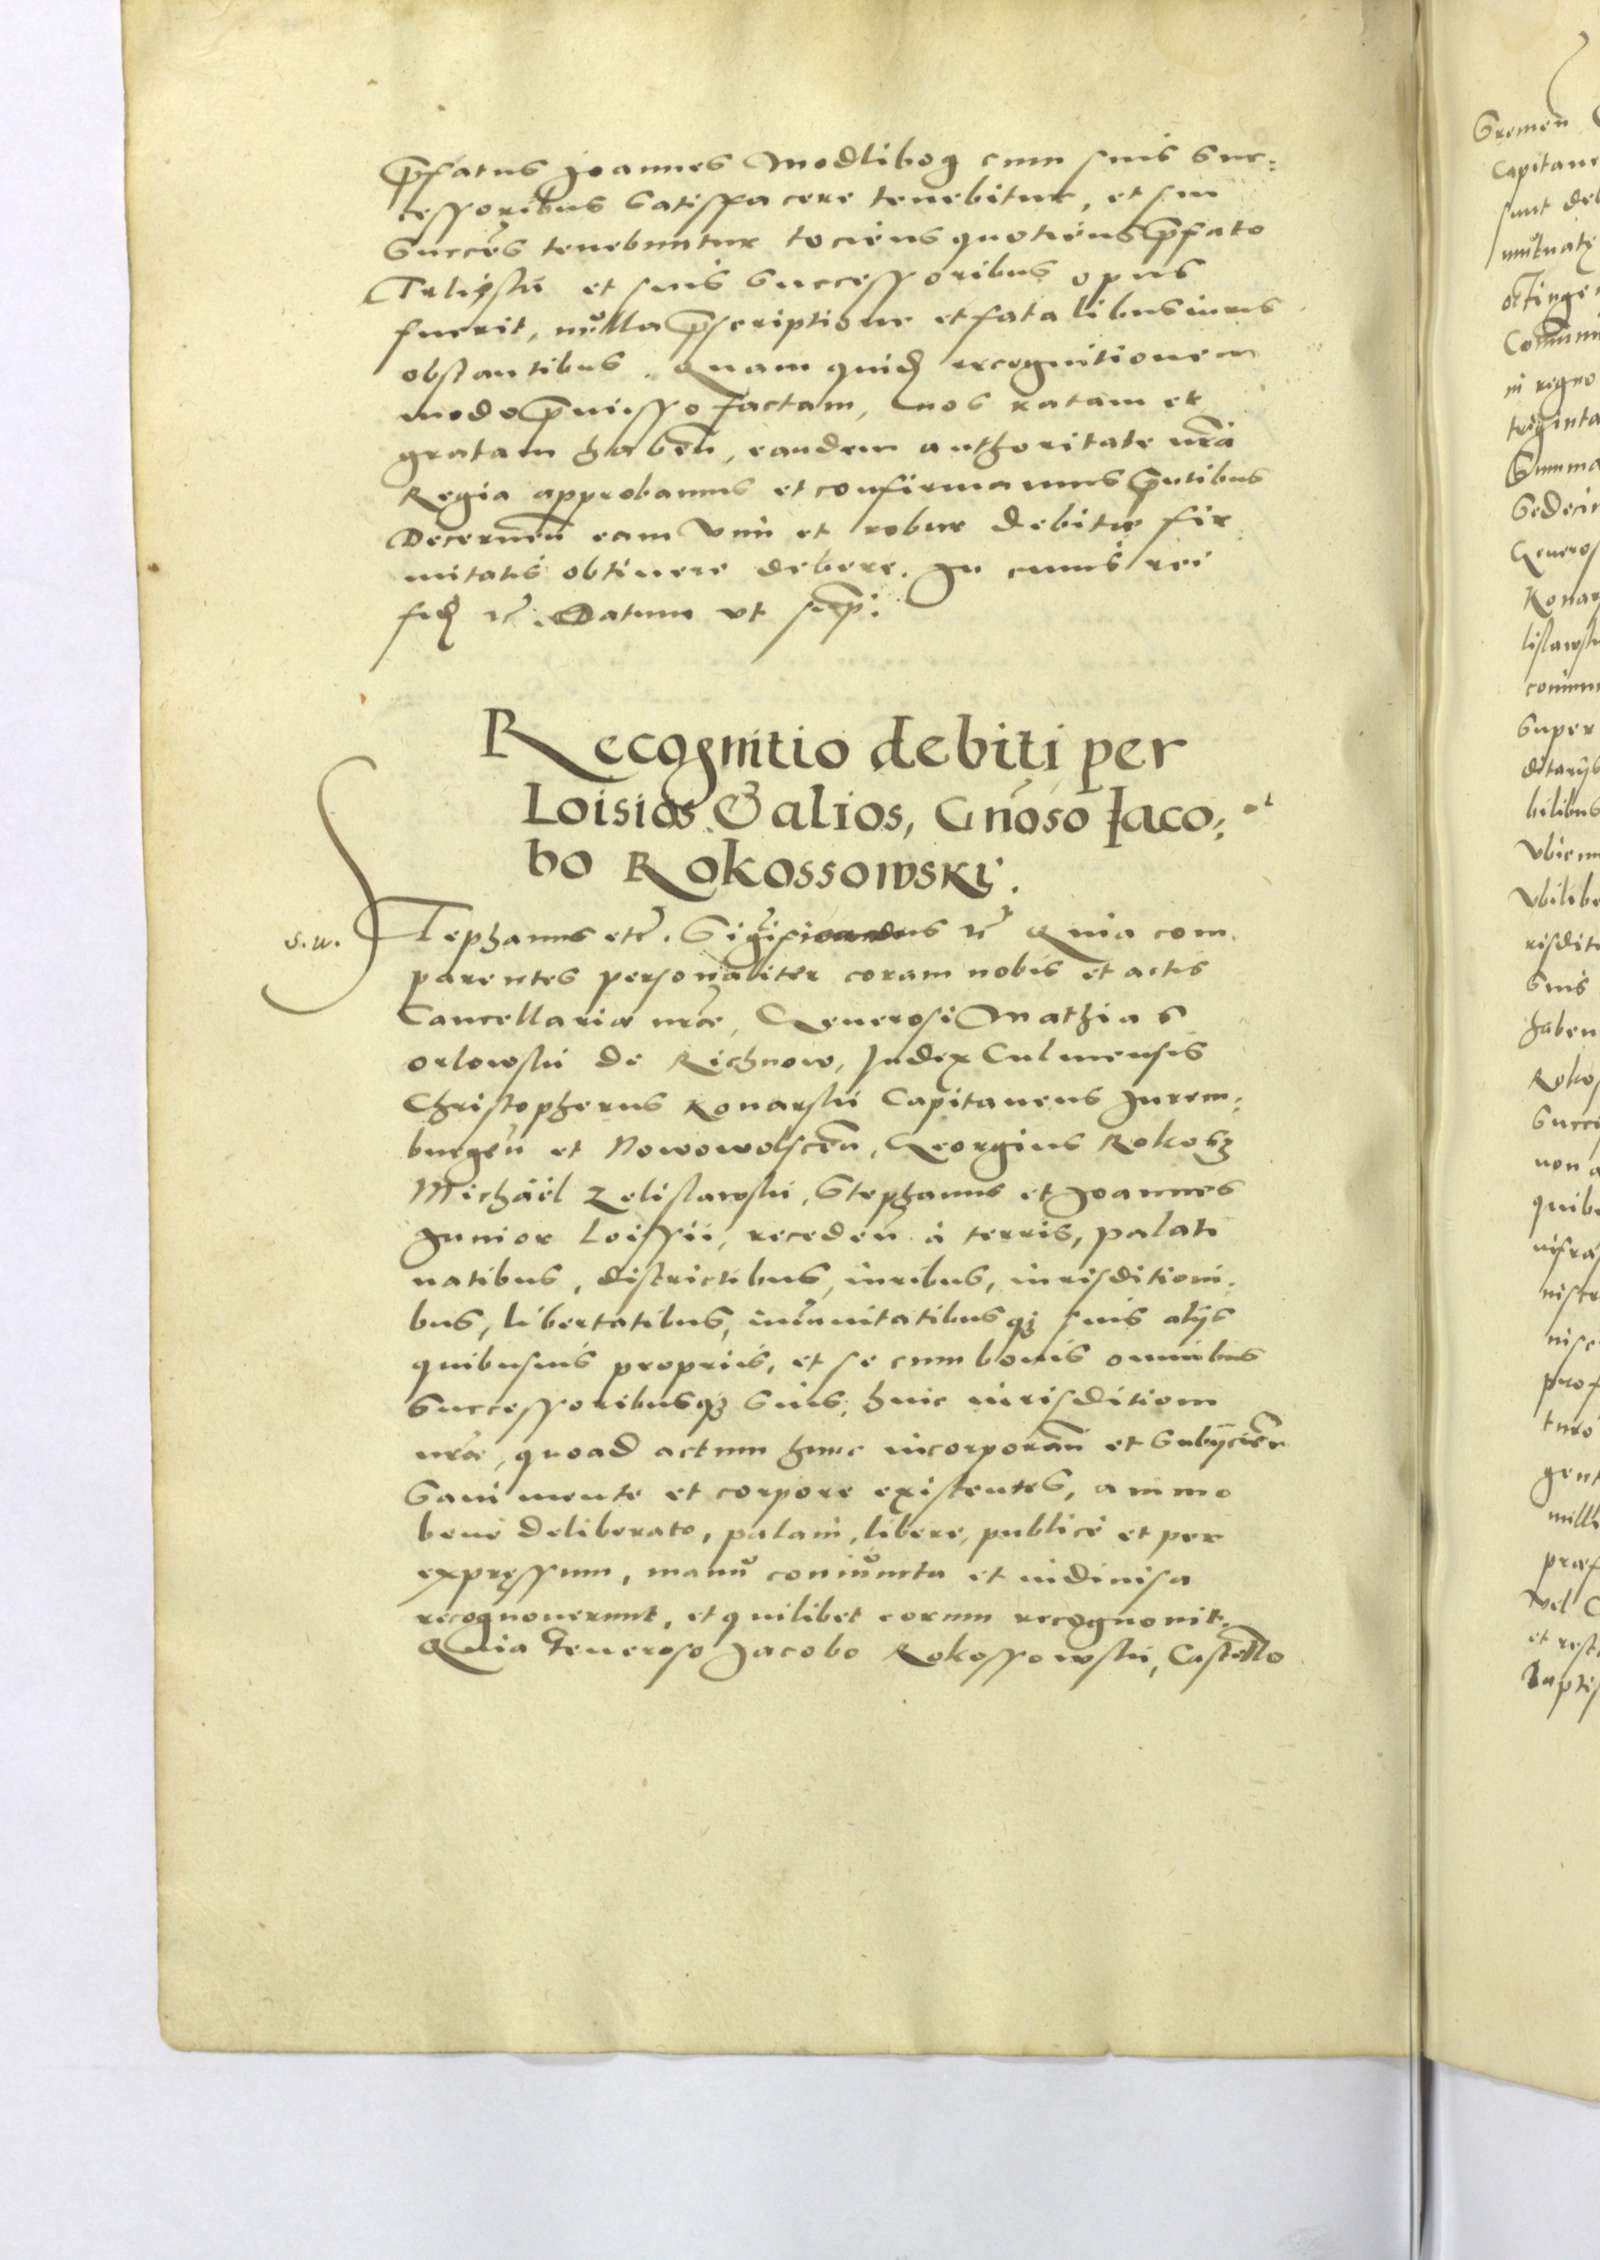 p̄fatus Joannes Modlibog cum suis suc:
cessoribus satisfacere tenebitur, et sui
succes̄ tenebuntur tociens quotiens p̄fato
et suis successoribus opus
fuerit, nulla p̄scriptione et fatalibus iuris
obstantibus. Quam quid̄ recognitionem
modo p̄misso factam, nos ratam et
gratam haben̄, eandem authoritate nr̄a
Regia approbamus et confirmamus p̄ntibus
Decernen̄ eam vim et robur debitæ fir
mitatis obtinere debere. In cuius rei
fid̄ etc̄. Datum vt sup̄:
Recognitio debiti per
Loisios & alios, Gn̄oso Jaco:
bo Rokossowskÿ.
S. w.
Stephanus etc̄. Significamus etc̄ Quia com
parentes personaliter coram nobis et actis
Cancellariæ nr̄æ, Generosi Mathias
Orlowski de Richnow, Judex Culmensis
Christopherus Konarski Capitaneus Hurem:
burgen̄ et Nowowolscen̄, Georgius Rokosz
Michäel Zelislawski, Stephanus et Joannes
Junior Loissii, receden̄ à terris, palati
natibus, districtibus, iuribus, iurisditioni:
bus, libertatibus, imunitatibusq3 suis alijs
quibusuis proprijs, et se cum bonis omnibus
successoribusq3 suis, huic iurisditioni
nr̄æ, quoad actum hunc incorporan̄ et subijcien̄
Sani mente et corpore existentes, animo
bene deliberato, palam, libere, publicè et per
expręssum, manu coniuncta et indiuisa
recognouerunt, et quilibet eorum recognouit.
Quia Generoso Jacobo Rokossowski, Castello
Sremen
Capitane
sunt deb
mutuatę
octinge
Com̄uni
in regno
triginta
Summa
Sedecim
Generos
Konar
lislawski
coniunc
super
ditarijs
bilibus
Vbicun
Vbilibe
risditi
suis
haben
Rokos
succe
non a
quibu
infra
nistr
nisi
prof
turo
gent
mill
præf
Vel C
et rest